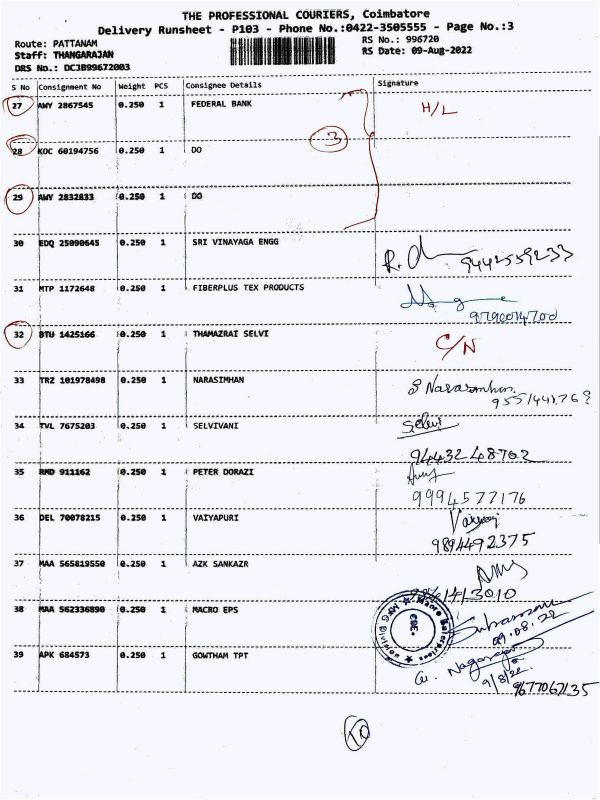 THE PROFESSIONAL COURIERS, Coimbatore
Delivery Runsheet - P103 - Phone No.:0422-3505555 - Page No.:3
Route: PATTANAM
RS No.: 996720
Staff: THANGARAJAN
RS Date: 09-Aug-2022
DRS No.: DCJB99672003
S No Consignment No Weight PCS Consignee Details Signature
27 AWY 2867545 0.250 1 FEDERAL BANK H/L
3
28 KOC 60194756 0.250 1 DO
29 AWY 2832833 0.250 1 DO
30 EDQ 25090645 0.250 1 SRI VINAYAGA ENGG
9442559233
31 MTP 1172648 0.250 1 FIBERPLUS TEX PRODUCTS
32 BTU 1425166 0.250 1 THAMAZRAI SELVI C/N
33 TRZ 101978498 0.250 1 NARASIMHAN S Narasimhan
34 TVL 7675203 0.250 1 SELVIVANI Selvi
9443248702
35 RMD 911162 0.250 1 PETER DORAZI
9994577176
36 DEL 70078215 0.250 1 VAIYAPURI
9894492375
37 MAA 565819550 0.250 1 AZK SANKAZR
38 MAA 562336890 0.250 1 MACRO EPS
09.08.22
39 APK 684573 0.250 1 GOWTHAM TPT Nagaraj
9/8/22
9677067135
10